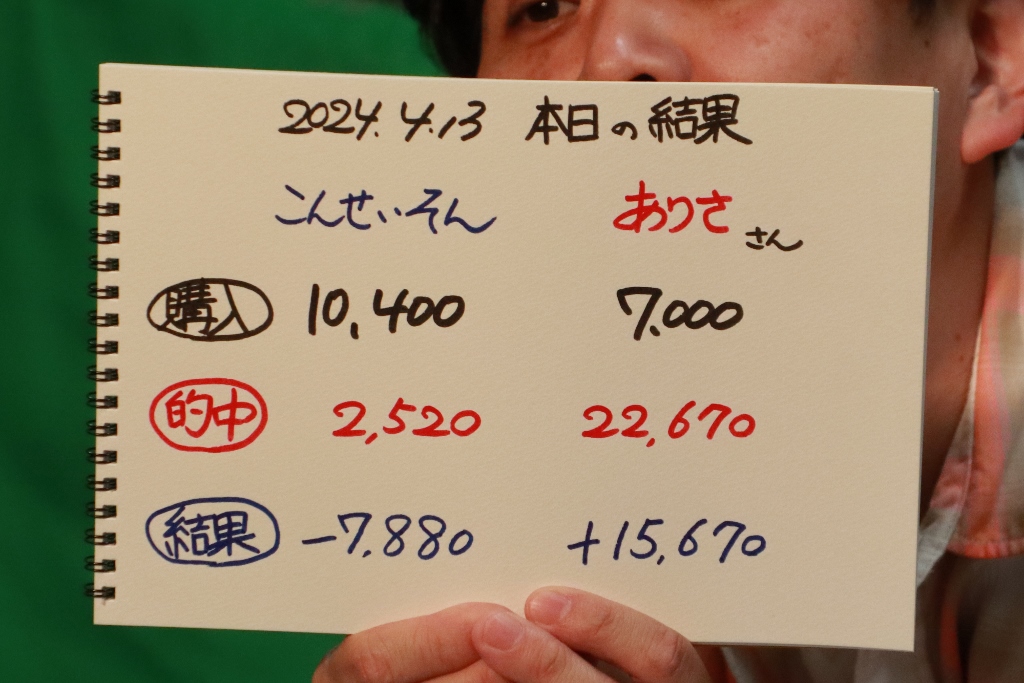 2024.4.13 本日の結果
こんせいそん ありささん
購入 10,400 7.000
的中 2,520 22,670
結果 -7.880 +15,670